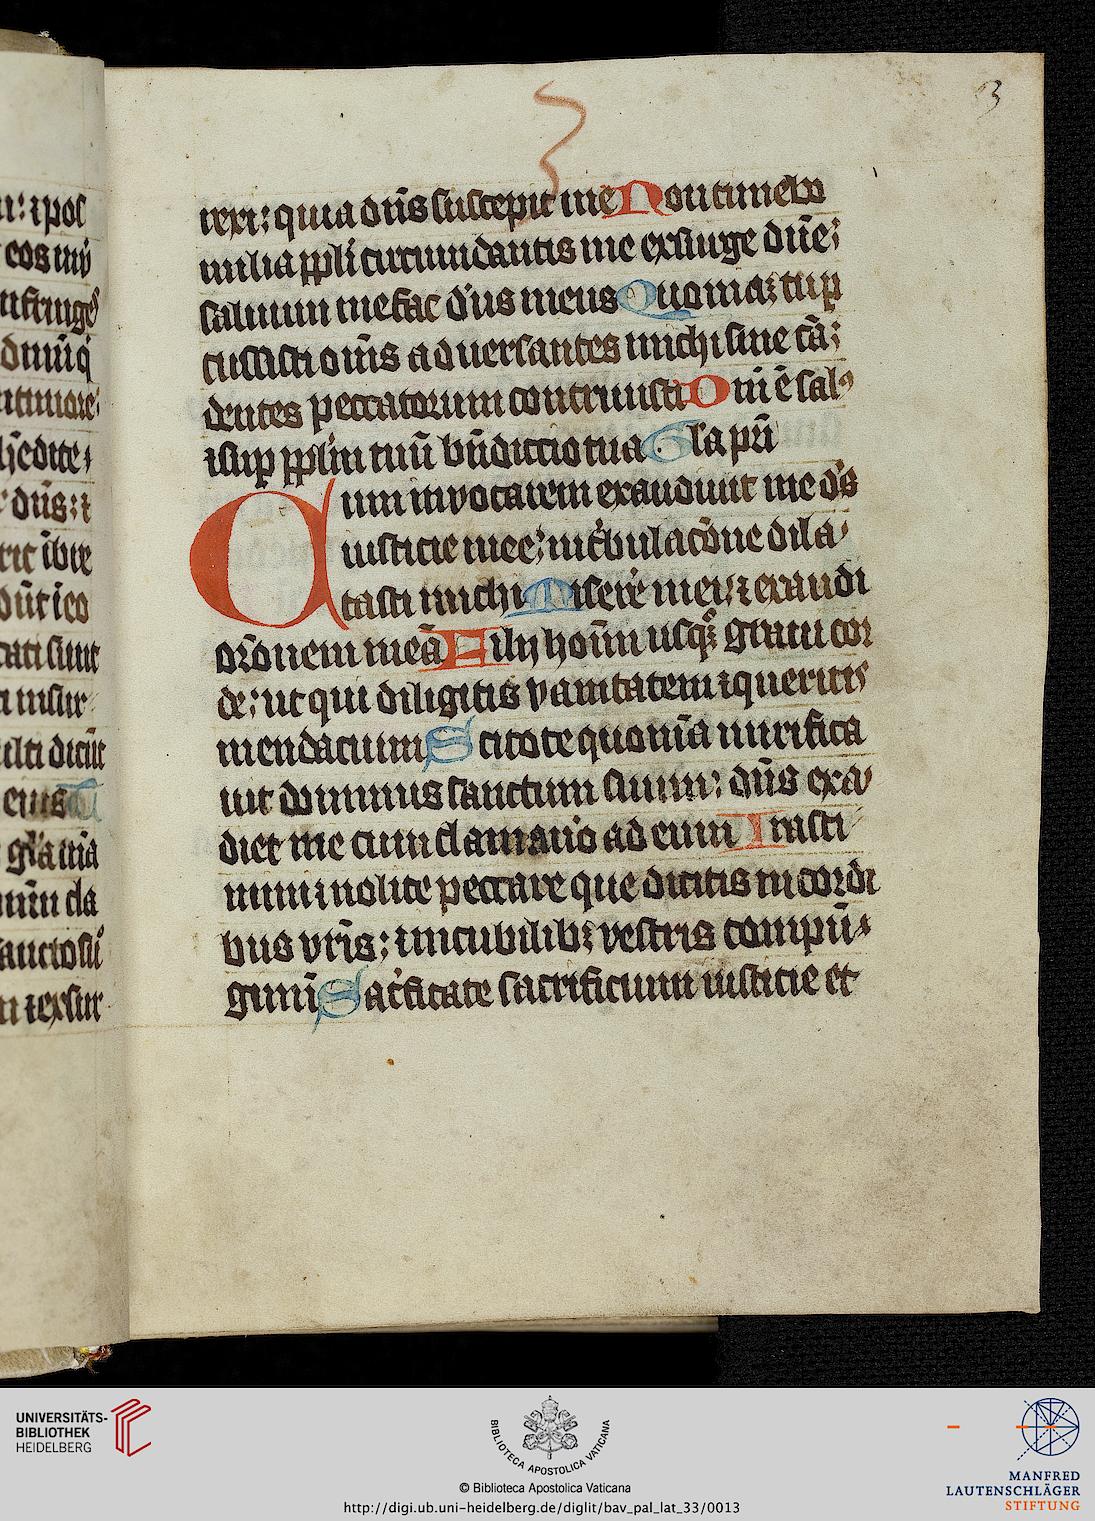 3
rexi: quia dn̄s suscepit me Non timebo
milia ppl̄i circumdantis me exsurge dn̄e:
saluum me fac d'us meus Quoniaꝫ tu ꝑ
cussisti om̄s aduersantes michi sine cā:
dentes peccatorum contriuisti Dn̄i ē salꝰ
⁊ suꝑ ppl̄m tuū bn̄dictio tua Gl̄a pr̄i
Cum inuocarem exaudiuit me d's
iusticie mee: in t'bulac̄one dila
tasti michi Misere' mei: ⁊ exaudi
or̄onem meā Filij hoīm usqꝫ graui cor
de: ut qui diligitis vanitatem ⁊ queritis
mendacium Scitote quoniā mirifica
uit dominus sanctum suum: dn̄s exa
diet me cum clamauero ad eum Irasci
mini ⁊ nolite peccare que dicitis in cordi
bus vr̄is: ⁊ in cubilibꝫ vestris compū
gimī Sac'ficate sacrificium iusticie et
u: ⁊ pos
eos in v'
nfringes
dn̄i q
n timore:
h̄endite
dn̄s: ⁊
cati sunt
i insur
ulti dicūt
eius
gl̄a mā
um cla
sancto su
⁊ exsur
UNIVERSITÄTS-
BIBLIOTHEK
HEIDELBERG
BIBLIOTECA APOSTOLICA VATICANA
© Biblioteca Apostolica Vaticana
http://digi.ub.uni-heidelberg.de/diglit/bav_pal_lat_33/0013
MANFRED
LAUTENSCHLÄGER
STIFTUNG